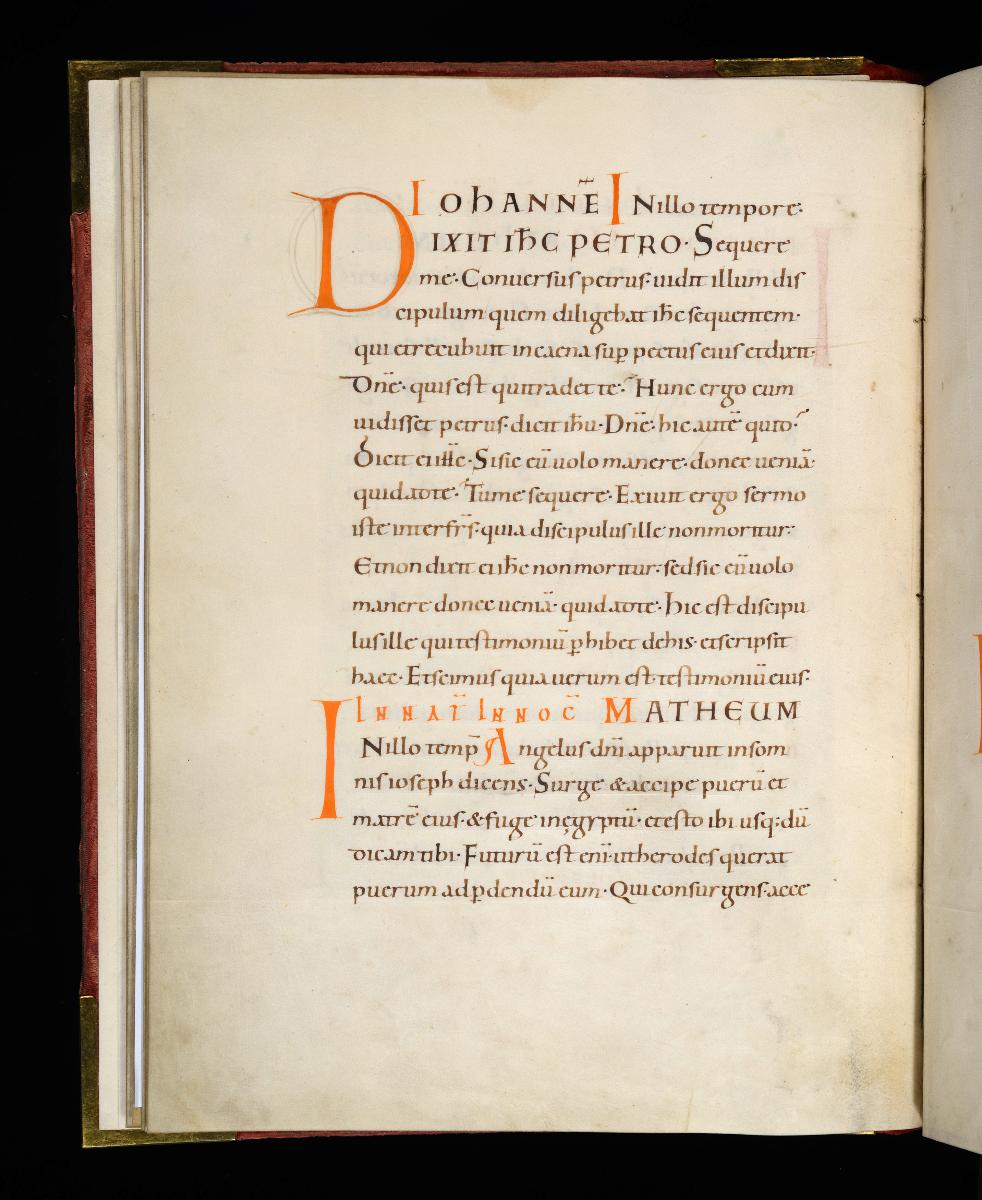 IOHANNE͞ IN illo tempore·
DIXIT IH̅C PETRO· Sequere
me· Conuersus petrus· uidit illum dis
cipulum quem diligebat ih̅c sequentem·
qui et recubuit in caena sup̱ pectus eius et dixit·
Dn̅e· quis est qui tradet te·? Hunc ergo cum
uidisset petrus· dicit ih̅u· Dn̅e· hic aute̅ quid·?
Dicit ei ih̅c· Si sic eu̅ uolo manere· donec uenia̅·
quid ad te·? Tu me sequere· Exiuit ergo sermo
iste inter fr̅s· quia discipulus ille non moritur·
Et non dixit ei ih̅c non moritur· sed sic eu̅ uolo
manere donec uenia̅· quid ad te· hic est discipu
lus ille qui testimoniu̅ ꝑhibet de his· et scripsit
haec· Et scimus quia uerum est testimoniu̅ eius·
IN NAT̅ INNOC̅ MATHEUM
IN illo temp̅ Angelus dn̅i apparuit in som
nis ioseph dicens· Surge & accipe pueru̅ et
matre̅ eius· & fuge in ęgyptu̅· et esto ibi usq; du̅
dicam tibi· Futuru̅ est eni̅· ut herodes querat
puerum ad ꝑdendu̅ eum· Qui consurgens· acce